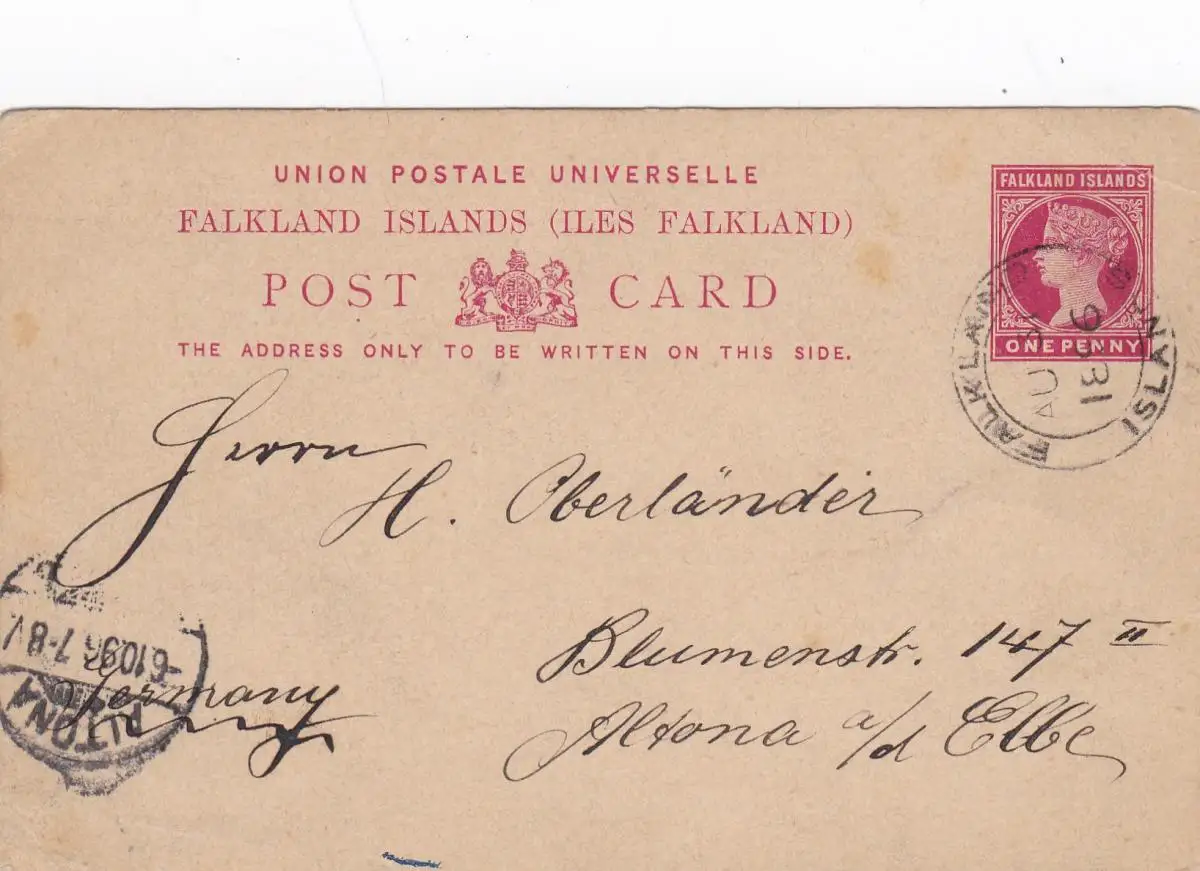 UNION POSTALE UNIVERSELLE
FALKLAND ISLANDS (ILES FALKLAND)
POST CARD
THE ADDRESS ONLY TO BE WRITTEN ON THIS SIDE.
FALKLAND ISLANDS
ONE PENNY
FALKLAND ISLAN
AU 31
96
Herrn
H. Oberländer
Blumenstr. 147 II
Altona a/d Elbe
Germany
ALTONA
-6.10.96 7-8V